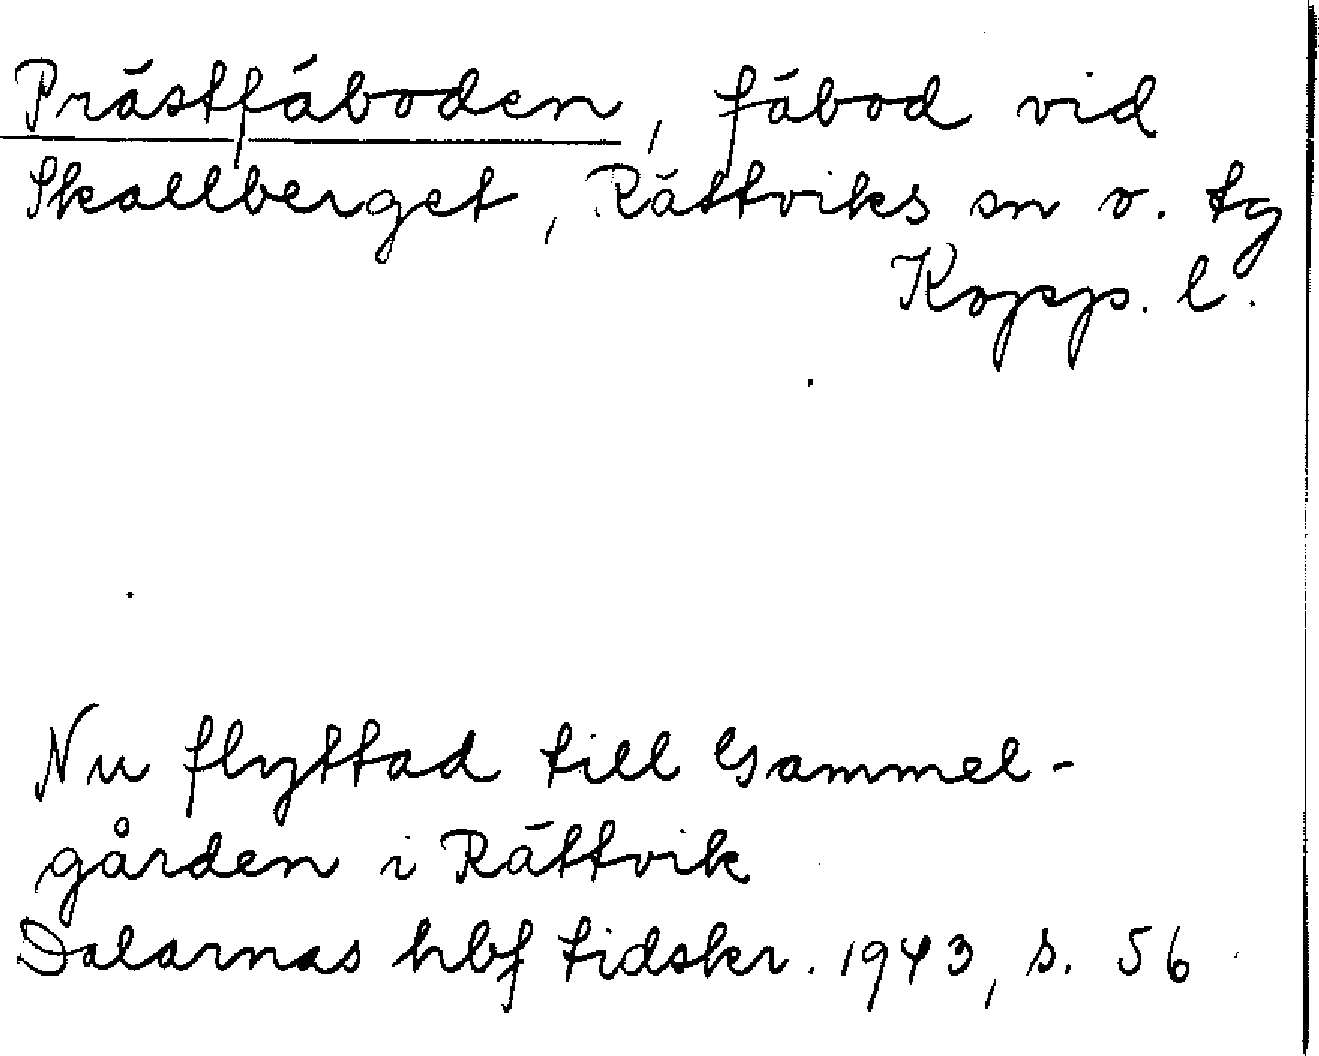 Prästfäboden, fäbod vid
Skallberget, Rättviks sn o. tg
Kopp. l.
Nu flyttad till Gammel-
gården i Rättvik
Dalarnas hbf tidskr. 1943, s. 56